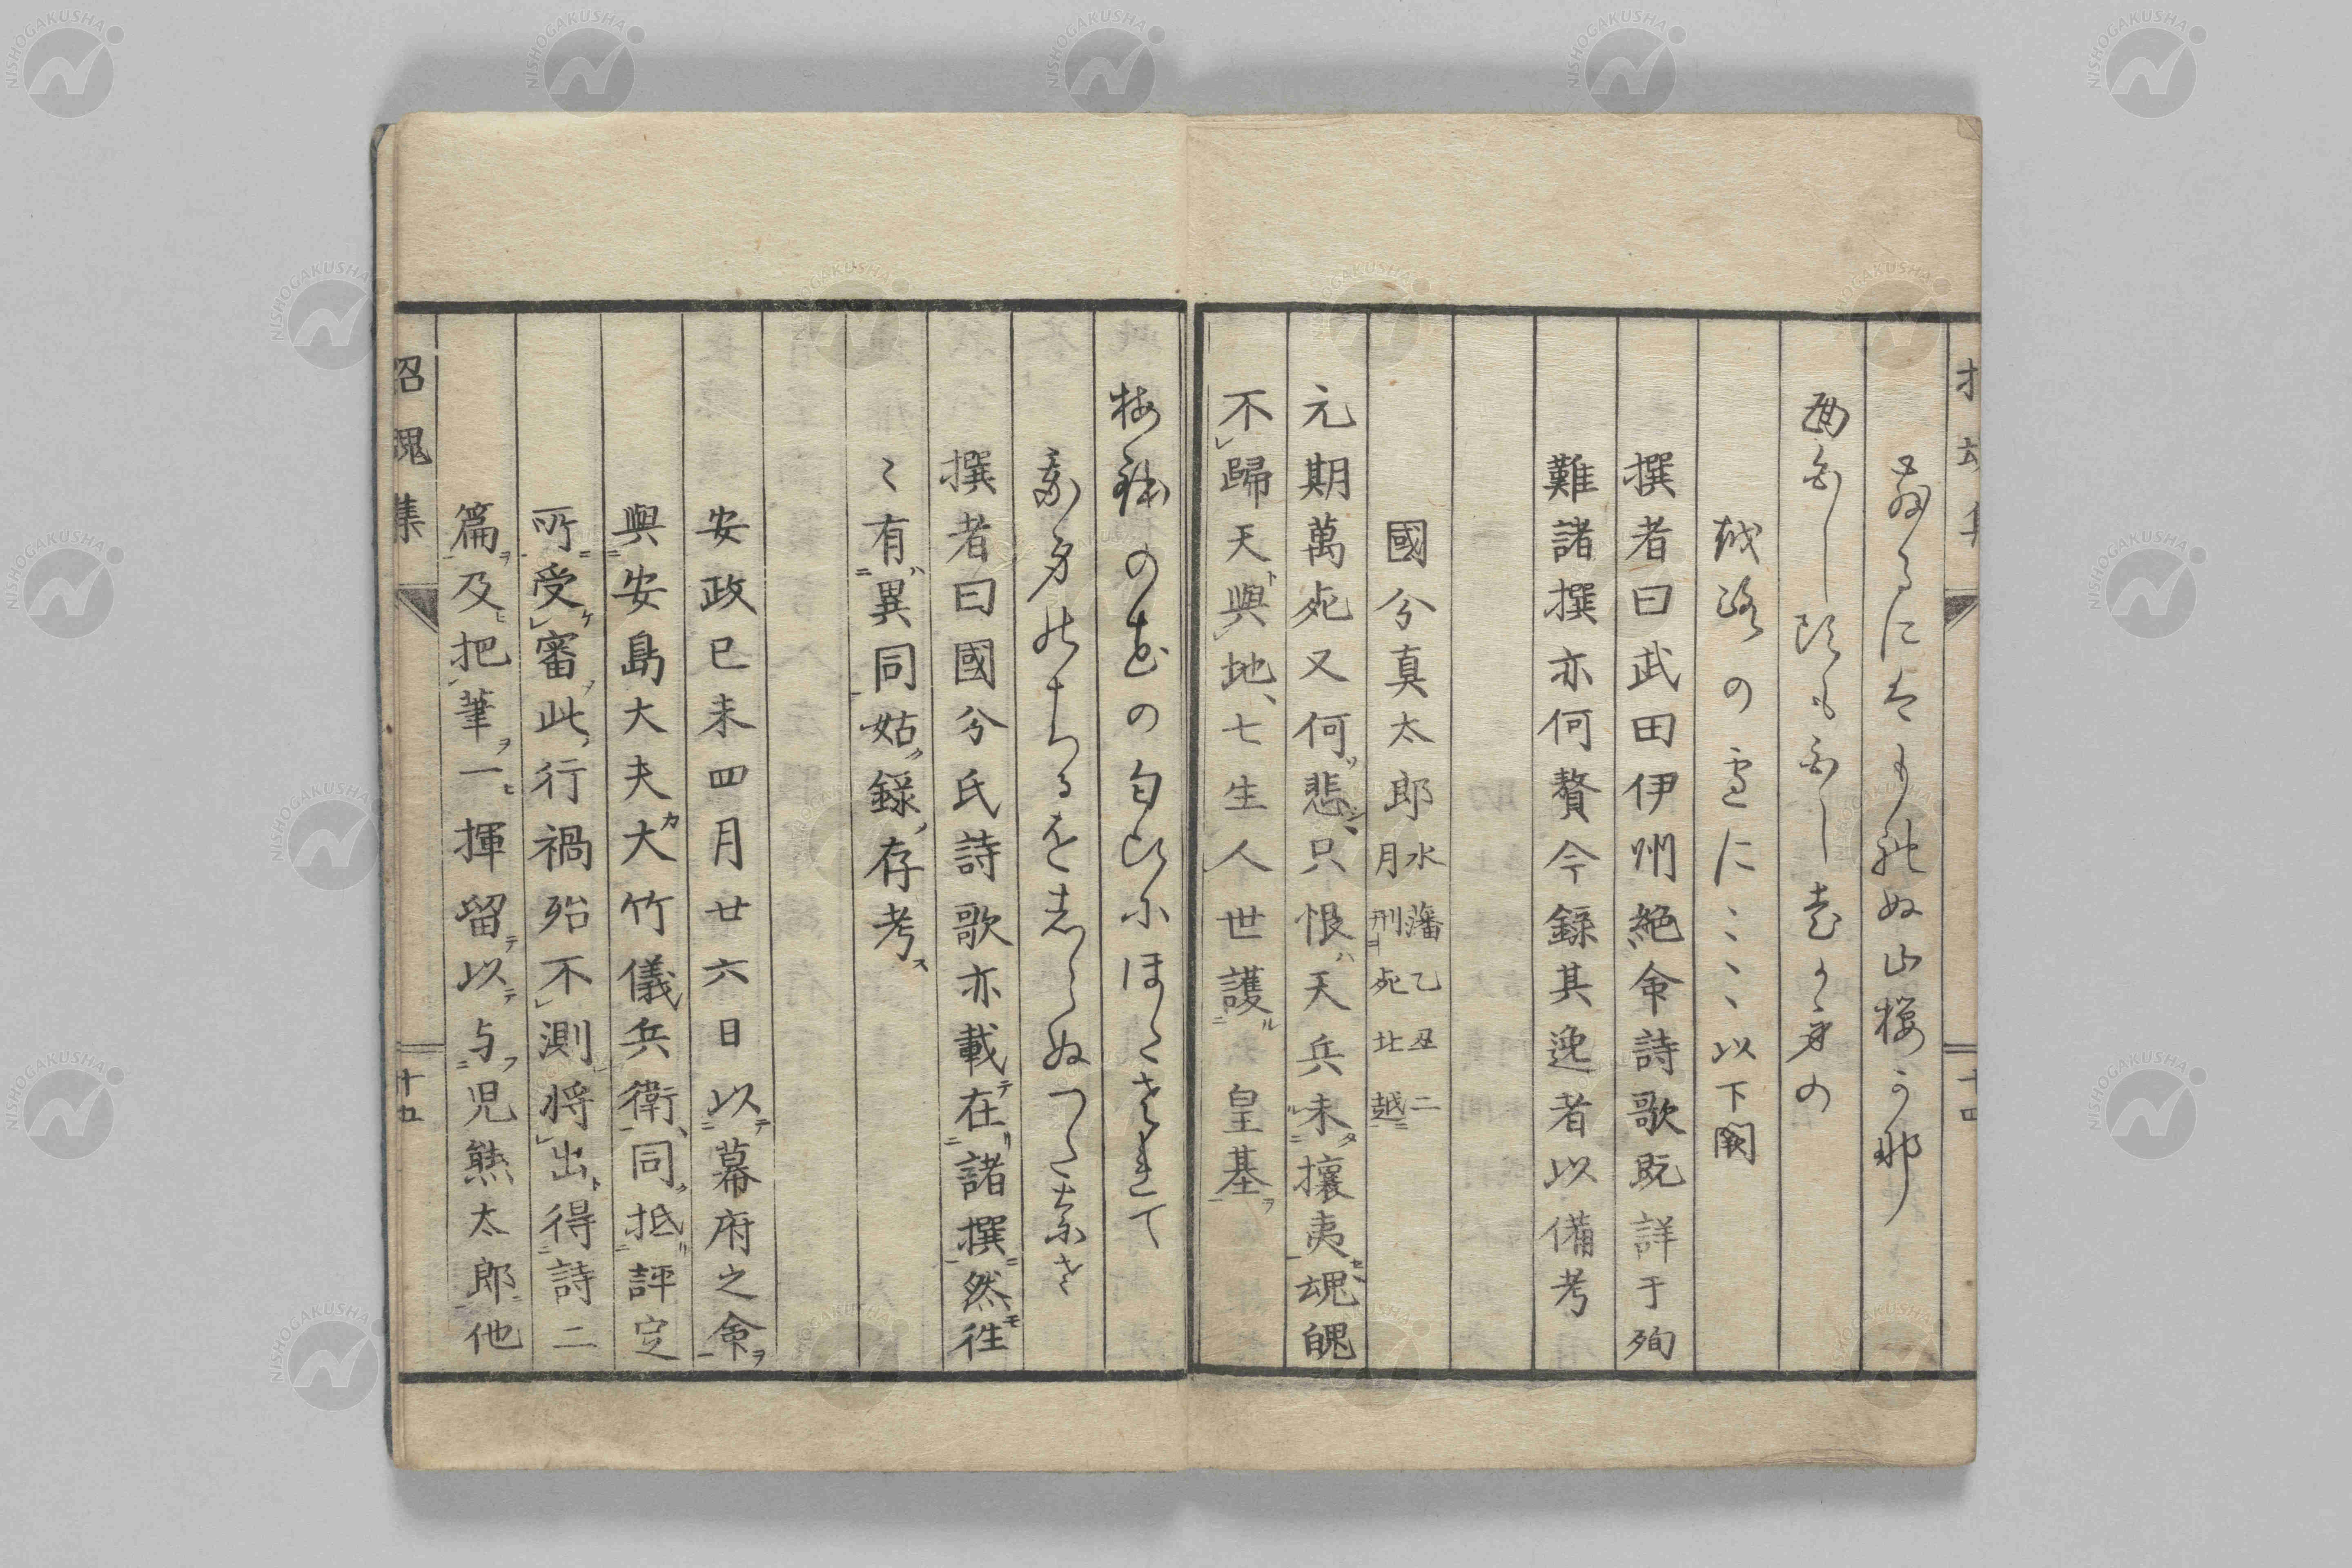 ふるにはもれぬ山櫻か那
西向し頭も向し老か身の
越路の雪に〻〻〻以下闕
撰者曰武田伊州絶命詩歌既詳于殉
難諸撰亦何贅今録其逸者以備考
國兮真太郎 水藩乙丑二月刑死北越
元期萬死又何悲只恨天兵未攘夷魂魄
不歸天與地七生人世護皇基
梅鉢の花の匂ひにほたされて
我身のちるを志らぬつたなさ
撰者曰國兮氏詩歌亦載在諸撰然徃
〻有異同姑録存考
安政己未四月廿六日以幕府之命
與安島大夫大竹儀兵衛同抵評定
所受審此行禍殆不測将出得詩二
篇及把筆一揮留以与児熊太郎他
招魂集
十五